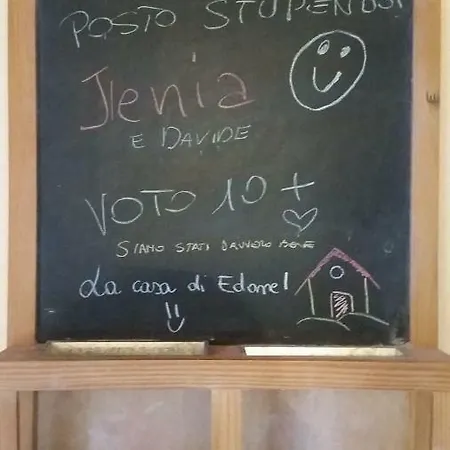 POSTO STUPENDO!
Jlenia
E DAVIDE
VOTO 10+
SIAMO STATI DAVVERO BENE
La casa di Edorre!